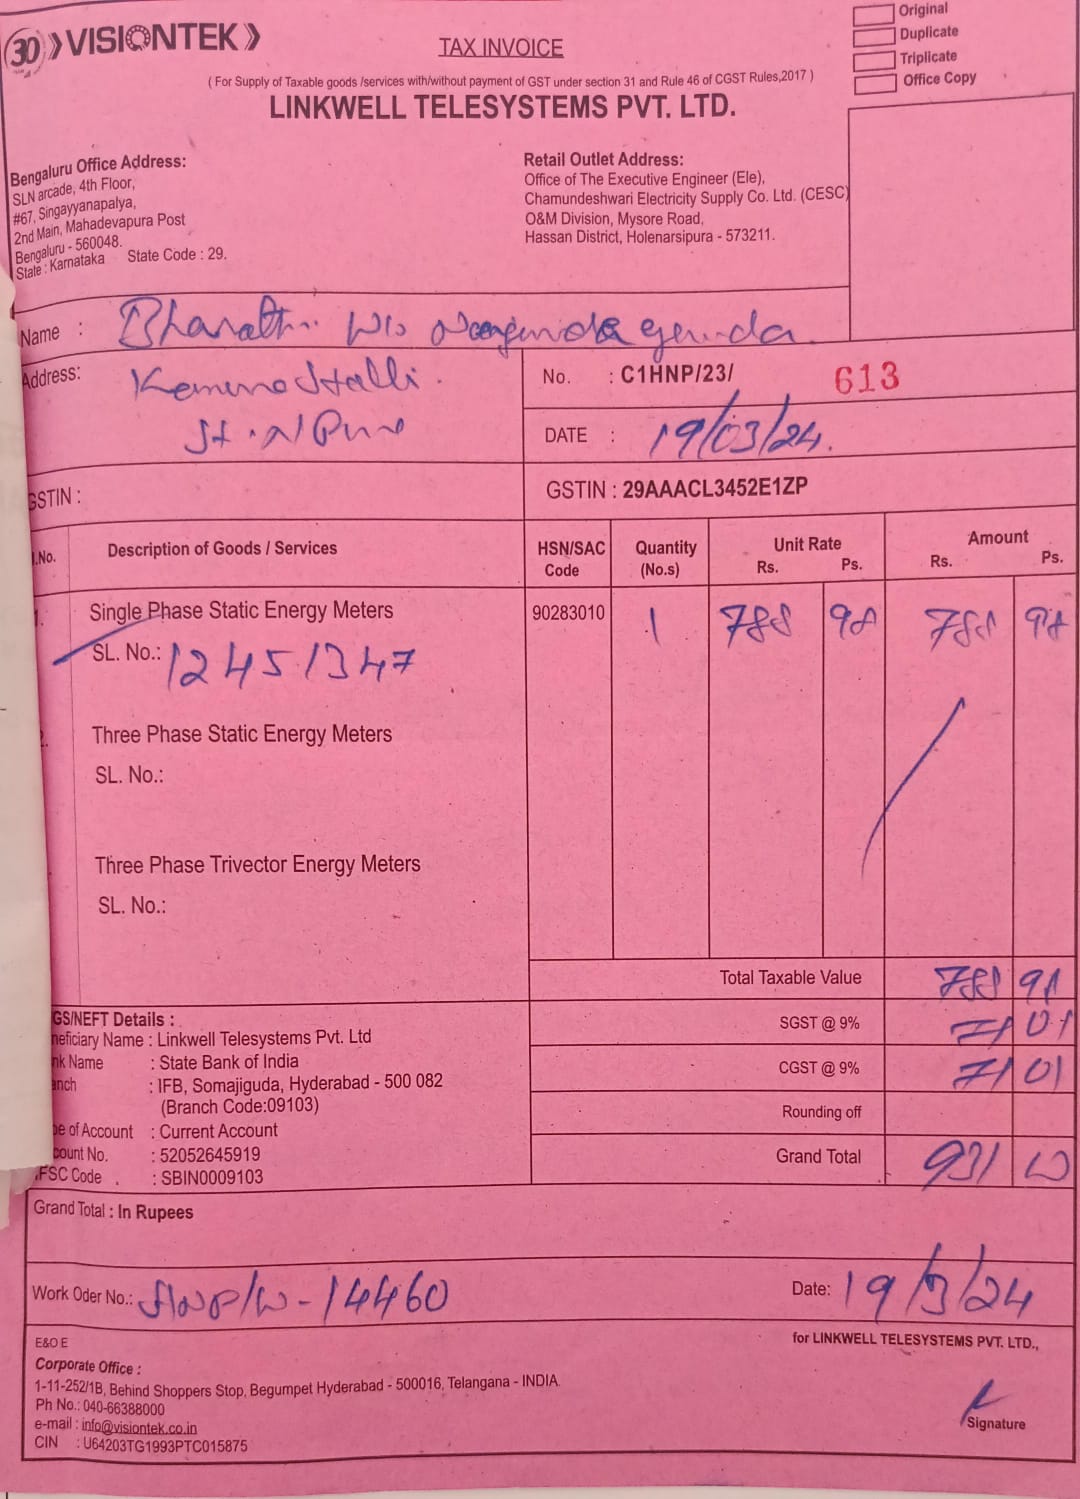 30 VISIONTEK
TAX INVOICE
Original
Duplicate
Triplicate
Office Copy
( For Supply of Taxable goods /services with/without payment of GST under section 31 and Rule 46 of CGST Rules,2017 )
LINKWELL TELESYSTEMS PVT. LTD.
Bengaluru Office Address:
SLN arcade, 4th Floor,
#67, Singayyanapalya,
2nd Main, Mahadevapura Post
Bengaluru - 560048.
State : Karnataka State Code : 29.
Retail Outlet Address:
Office of The Executive Engineer (Ele),
Chamundeshwari Electricity Supply Co. Ltd. (CESC)
O&M Division, Mysore Road,
Hassan District, Holenarsipura - 573211.
Name : Bharathi W/o
Address:
No. : C1HNP/23/ 613
DATE : 19/03/24.
GSTIN :
GSTIN : 29AAACL3452E1ZP
.No. Description of Goods / Services HSN/SAC Code Quantity (No.s) Unit Rate Rs. Ps. Amount Rs. Ps.
1. Single Phase Static Energy Meters 90283010 1 788 98 788 98
SL. No.: 12451347
2. Three Phase Static Energy Meters
SL. No.:
Three Phase Trivector Energy Meters
SL. No.:
Total Taxable Value 788 98
SGST @ 9% 71 01
CGST @ 9% 71 01
Rounding off
Grand Total 931 00
GS/NEFT Details :
neficiary Name : Linkwell Telesystems Pvt. Ltd
nk Name : State Bank of India
anch : IFB, Somajiguda, Hyderabad - 500 082
(Branch Code:09103)
pe of Account : Current Account
count No. : 52052645919
IFSC Code : SBIN0009103
Grand Total : In Rupees
Work Oder No.: HNP/W-14460
Date: 19/3/24
E&O E
for LINKWELL TELESYSTEMS PVT. LTD.,
Corporate Office :
1-11-252/1B, Behind Shoppers Stop, Begumpet Hyderabad - 500016, Telangana - INDIA.
Ph No.: 040-66388000
e-mail : info@visiontek.co.in
CIN : U64203TG1993PTC015875
Signature